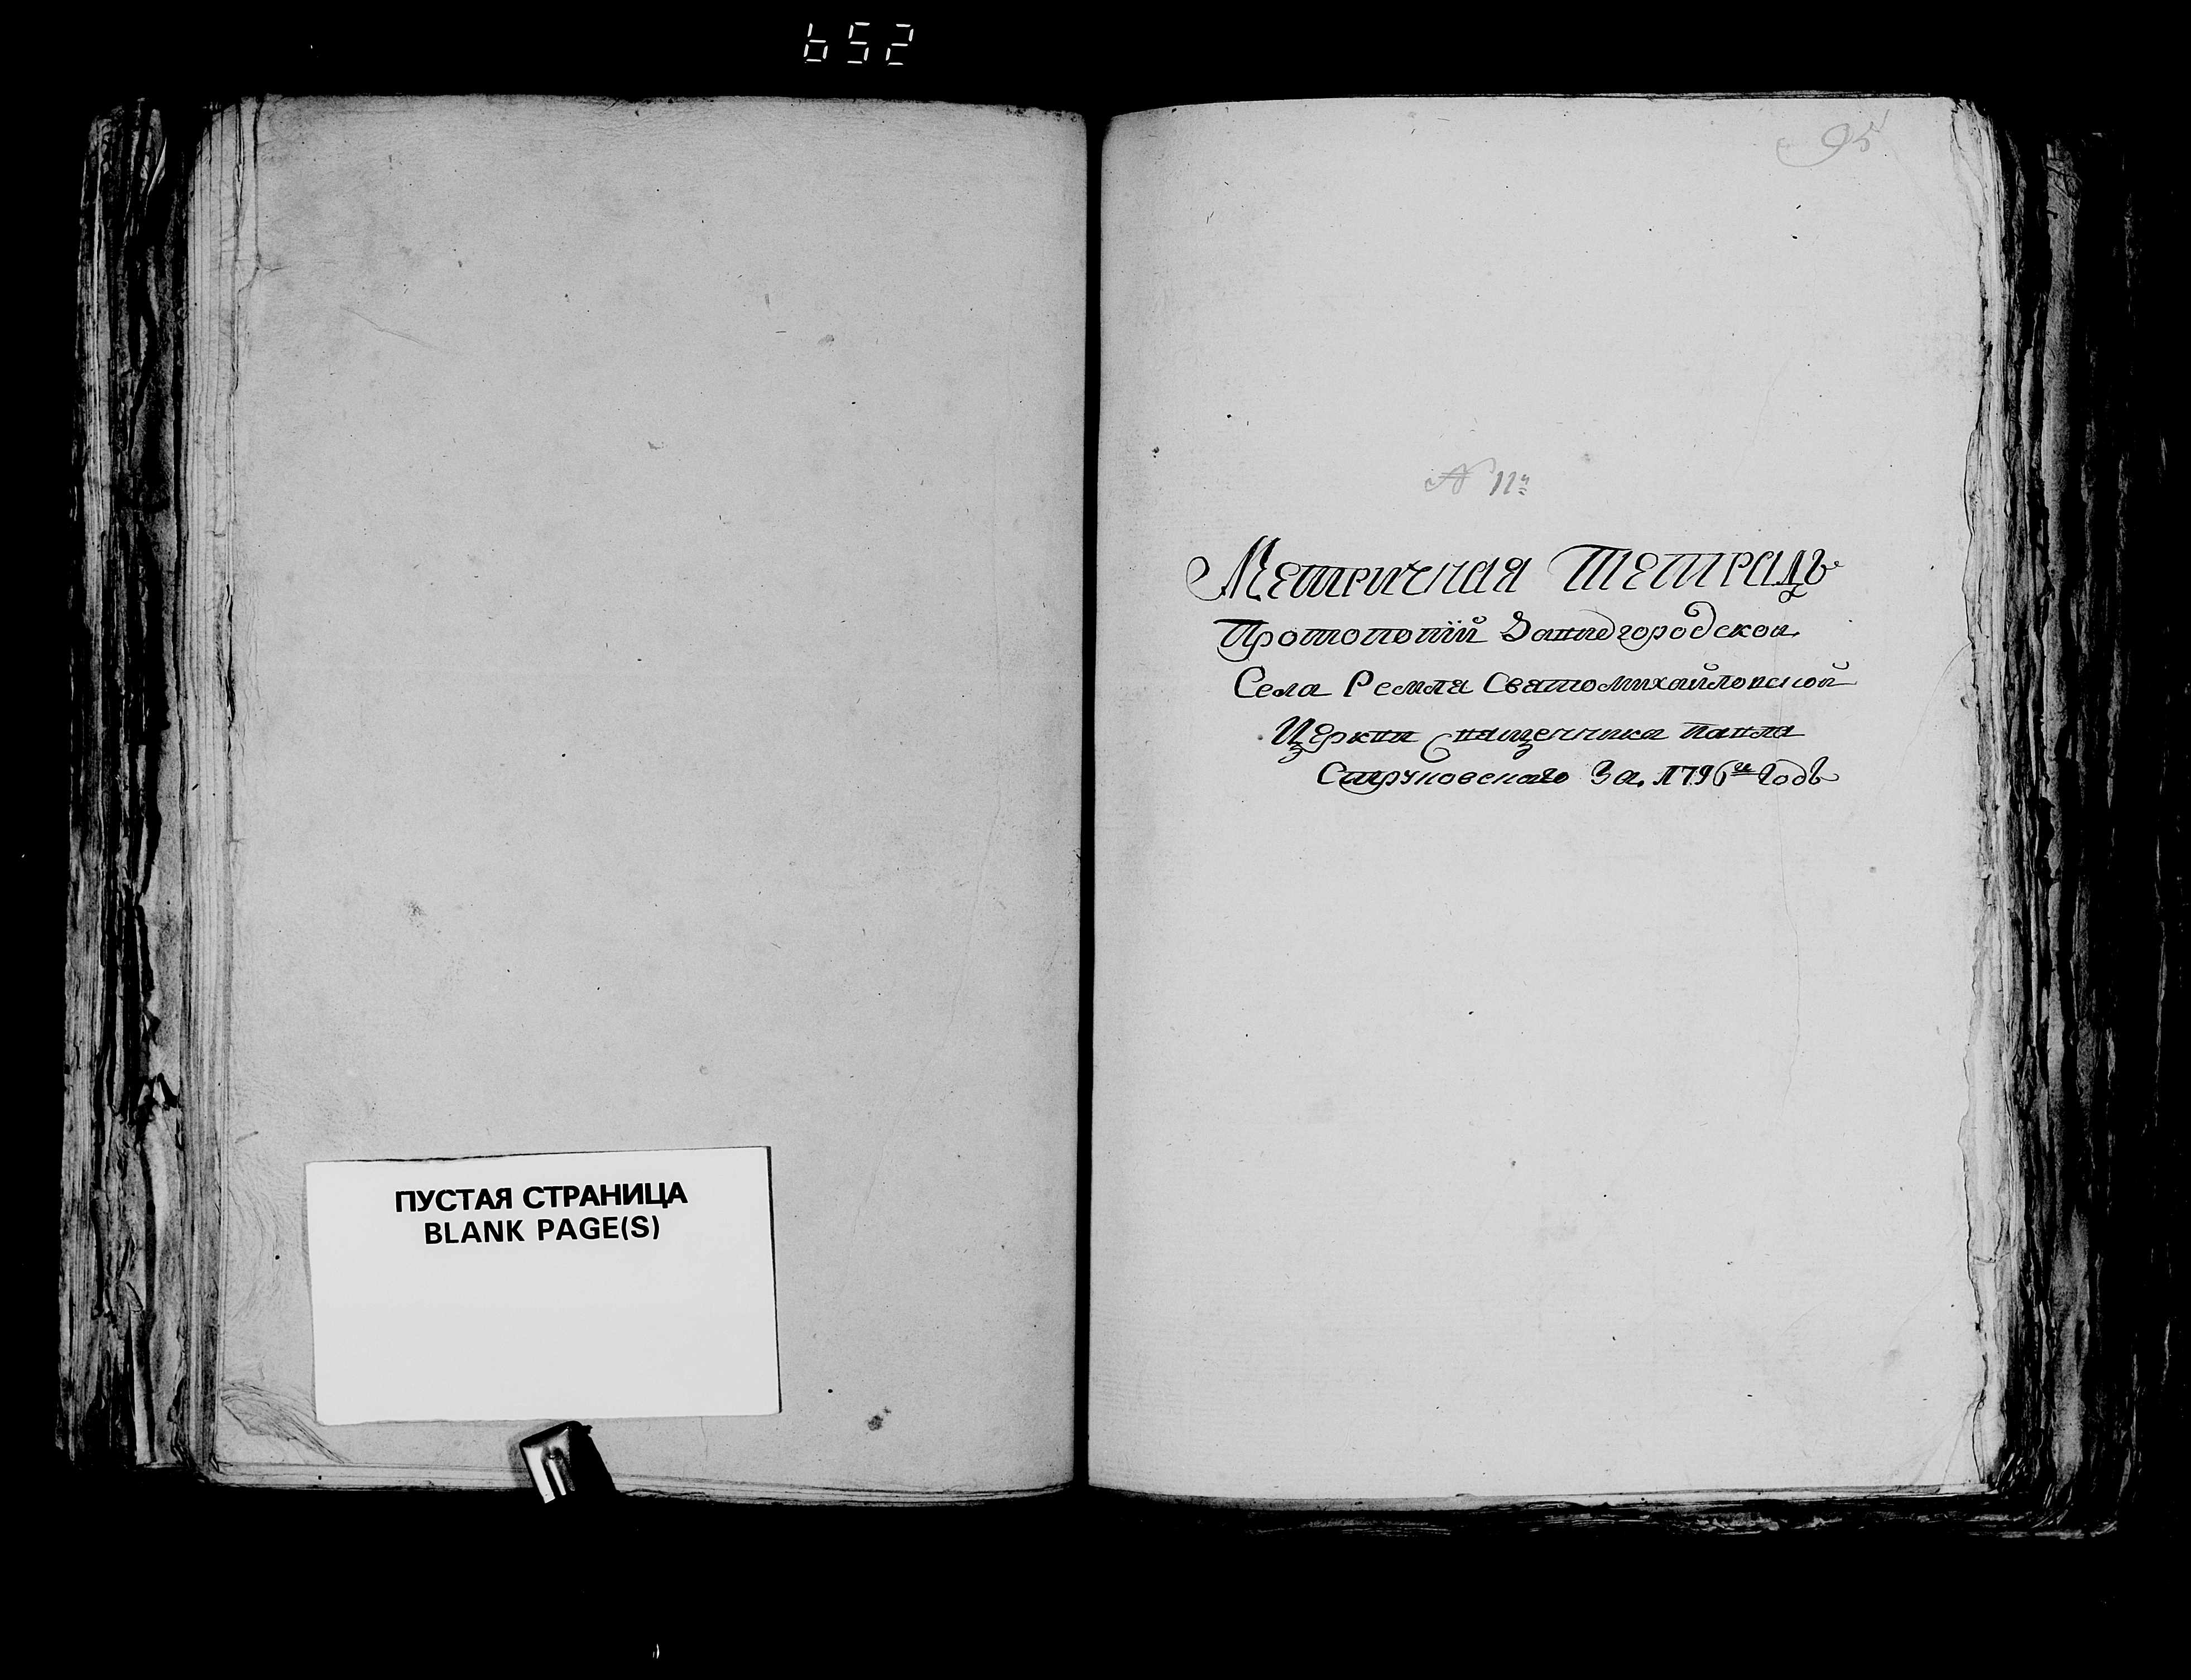 652
ПУСТАЯ СТРАНИЦА
BLANK PAGE(S)
95
N 11й
Метричная тетрадь
Протопопїй
Села Ремля Святомихайловской
Церкви Священника Павла
Струковского За 1796й годъ